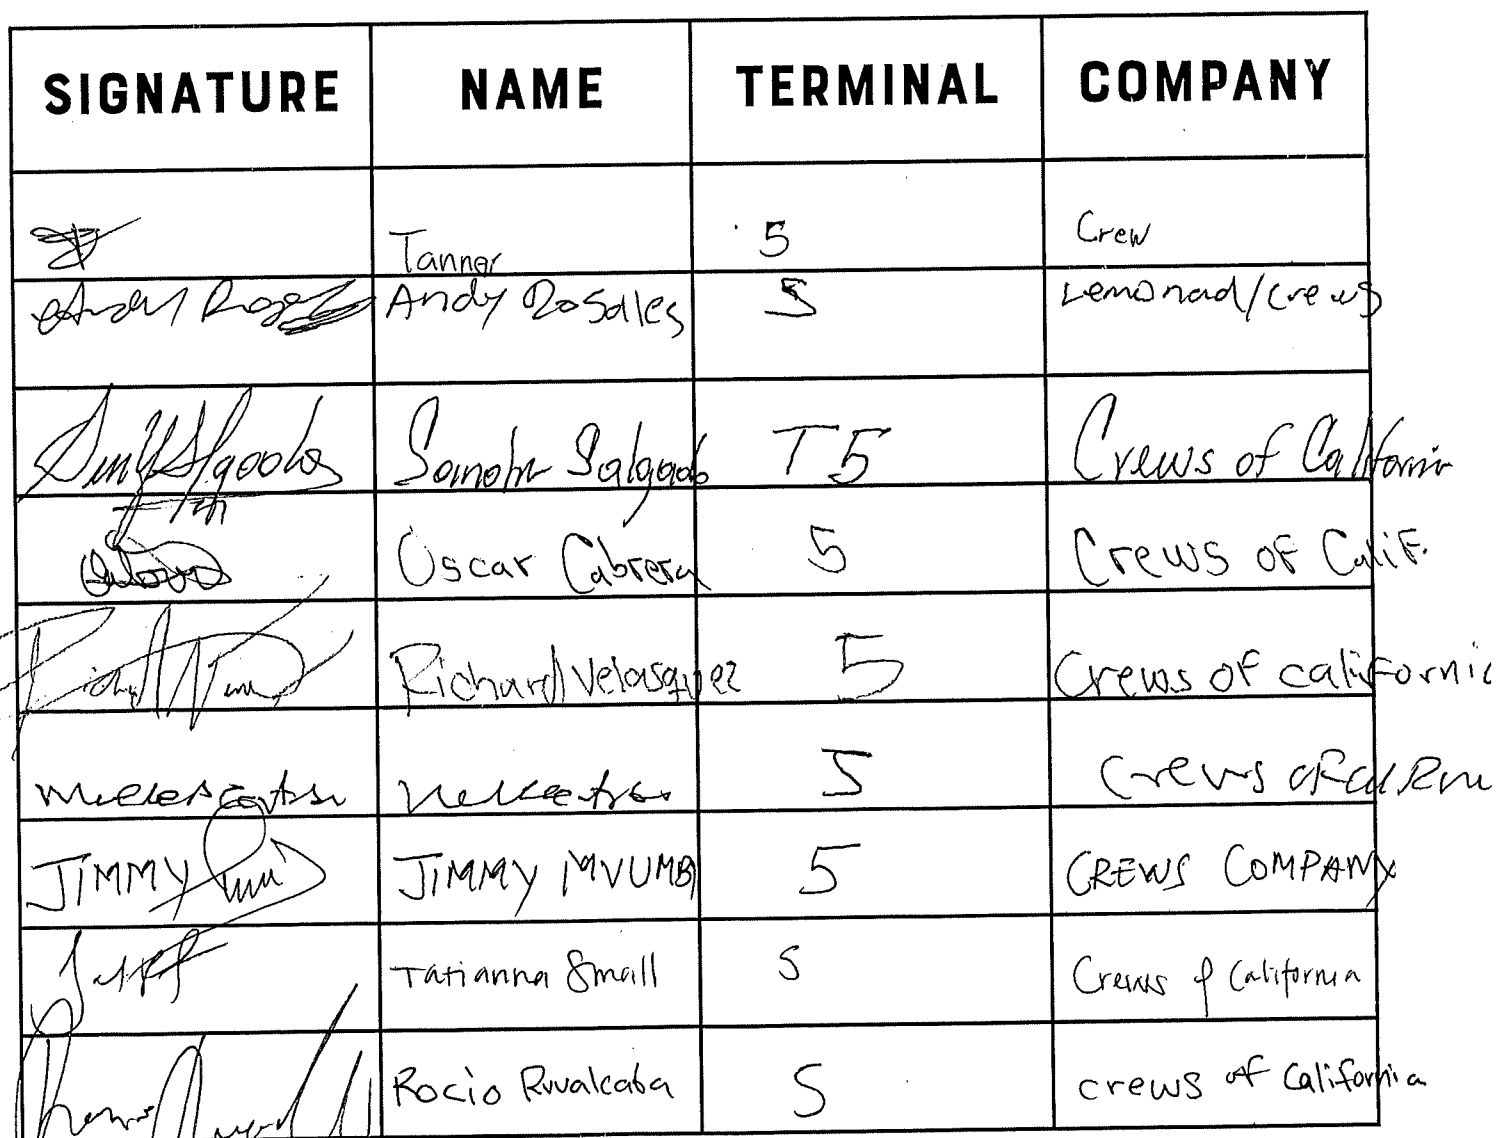 SIGNATURE NAME TERMINAL COMPANY
Tanner 5 Crew
Andy Rosales Andy Rosales 5 Lemonad/crews
Salgado T5 Crews of California
Oscar Cabrera 5 Crews OF Calif.
Richard Richard Velasquez 5 Crews OF california
5 Crews of
JIMMY JIMMY MVUMBI 5 CREWS COMPANY
Tatianna Small 5 Crews of California
Rocio Ruvalcaba 5 crews of California